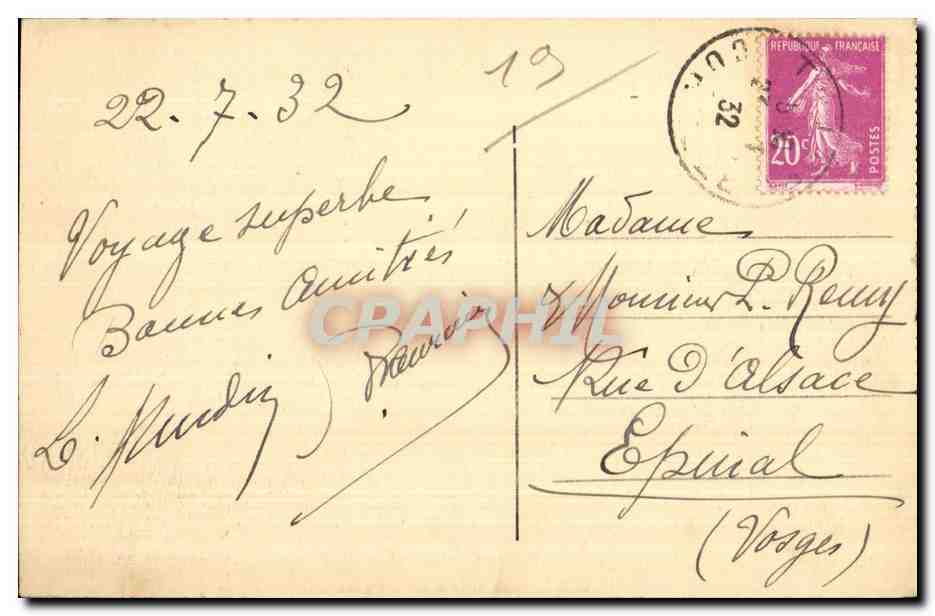 19
22.7.32
Voyage superbe
Bonnes amitiés
L.
RÉPUBLIQUE FRANÇAISE
20c
POSTES
32
Madame
& Monsieur P. Remy
Rue d'Alsace
Epinal
(Vosges)
CPAPHIL